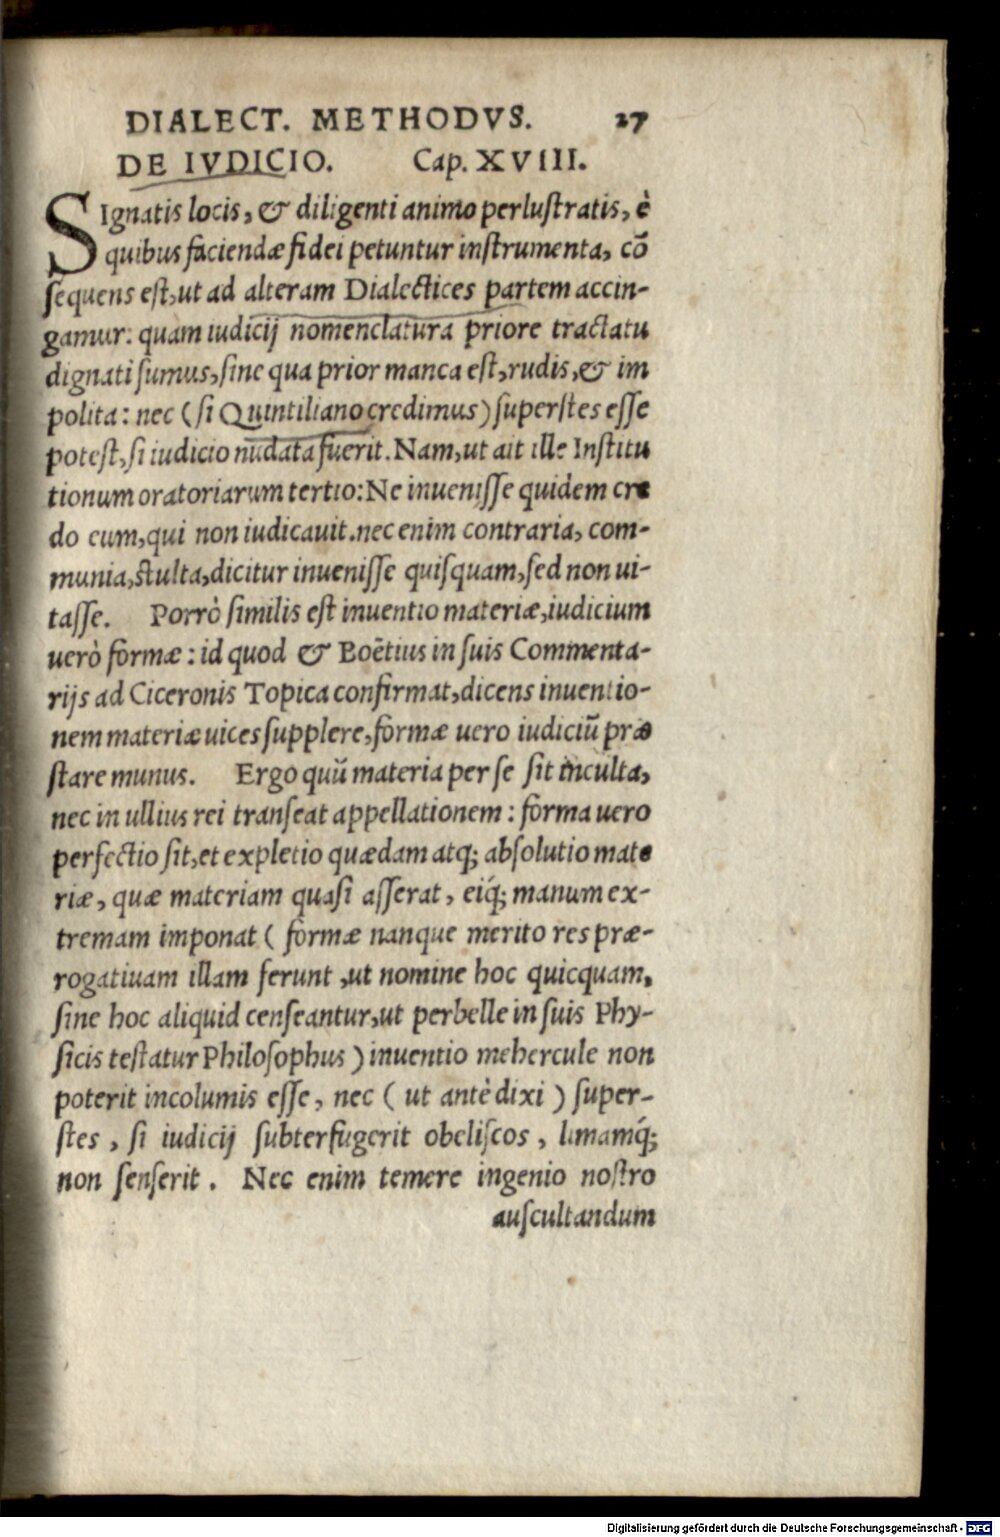 DIALECT. METHODVS. 27
DE IVDICIO. Cap. XVIII.
SIgnatis locis, & diligenti animo perlustratis, è
quibus faciendæ fidei petuntur instrumenta, cõ
sequens est, ut ad alteram Dialectices partem accin-
gamur: quam iudicij nomenclatura priore tractatu
dignati sumus, sine qua prior manca est, rudis, & im
polita: nec (si Quintiliano credimus) superstes esse
potest, si iudicio nudata fuerit. Nam, ut ait ille Institu
tionum oratoriarum tertio: Ne inuenisse quidem cre
do eum, qui non iudicauit. nec enim contraria, com-
munia, stulta, dicitur inuenisse quisquam, sed non ui-
tasse. Porrò similis est inuentio materiæ, iudicium
uerò formæ: id quod & Boëtius in suis Commenta-
rijs ad Ciceronis Topica confirmat, dicens inuentio-
nem materiæ uices supplere, formæ uero iudiciũ præ
stare munus. Ergo quũ materia per se sit inculta,
nec in ullius rei transeat appellationem: forma uero
perfectio sit, et expletio quædam atq; absolutio mate
riæ, quæ materiam quasi asserat, eiq́; manum ex-
tremam imponat ( formæ nanque merito res præ-
rogatiuam illam ferunt, ut nomine hoc quicquam,
sine hoc aliquid censeantur, ut perbelle in suis Phy-
sicis testatur Philosophus ) inuentio mehercule non
poterit incolumis esse, nec ( ut antè dixi ) super-
stes, si iudicij subterfugerit obeliscos, limamq́;
non senserit. Nec enim temere ingenio nostro
auscultandum
Digitalisierung gefördert durch die Deutsche Forschungsgemeinschaft - DFG